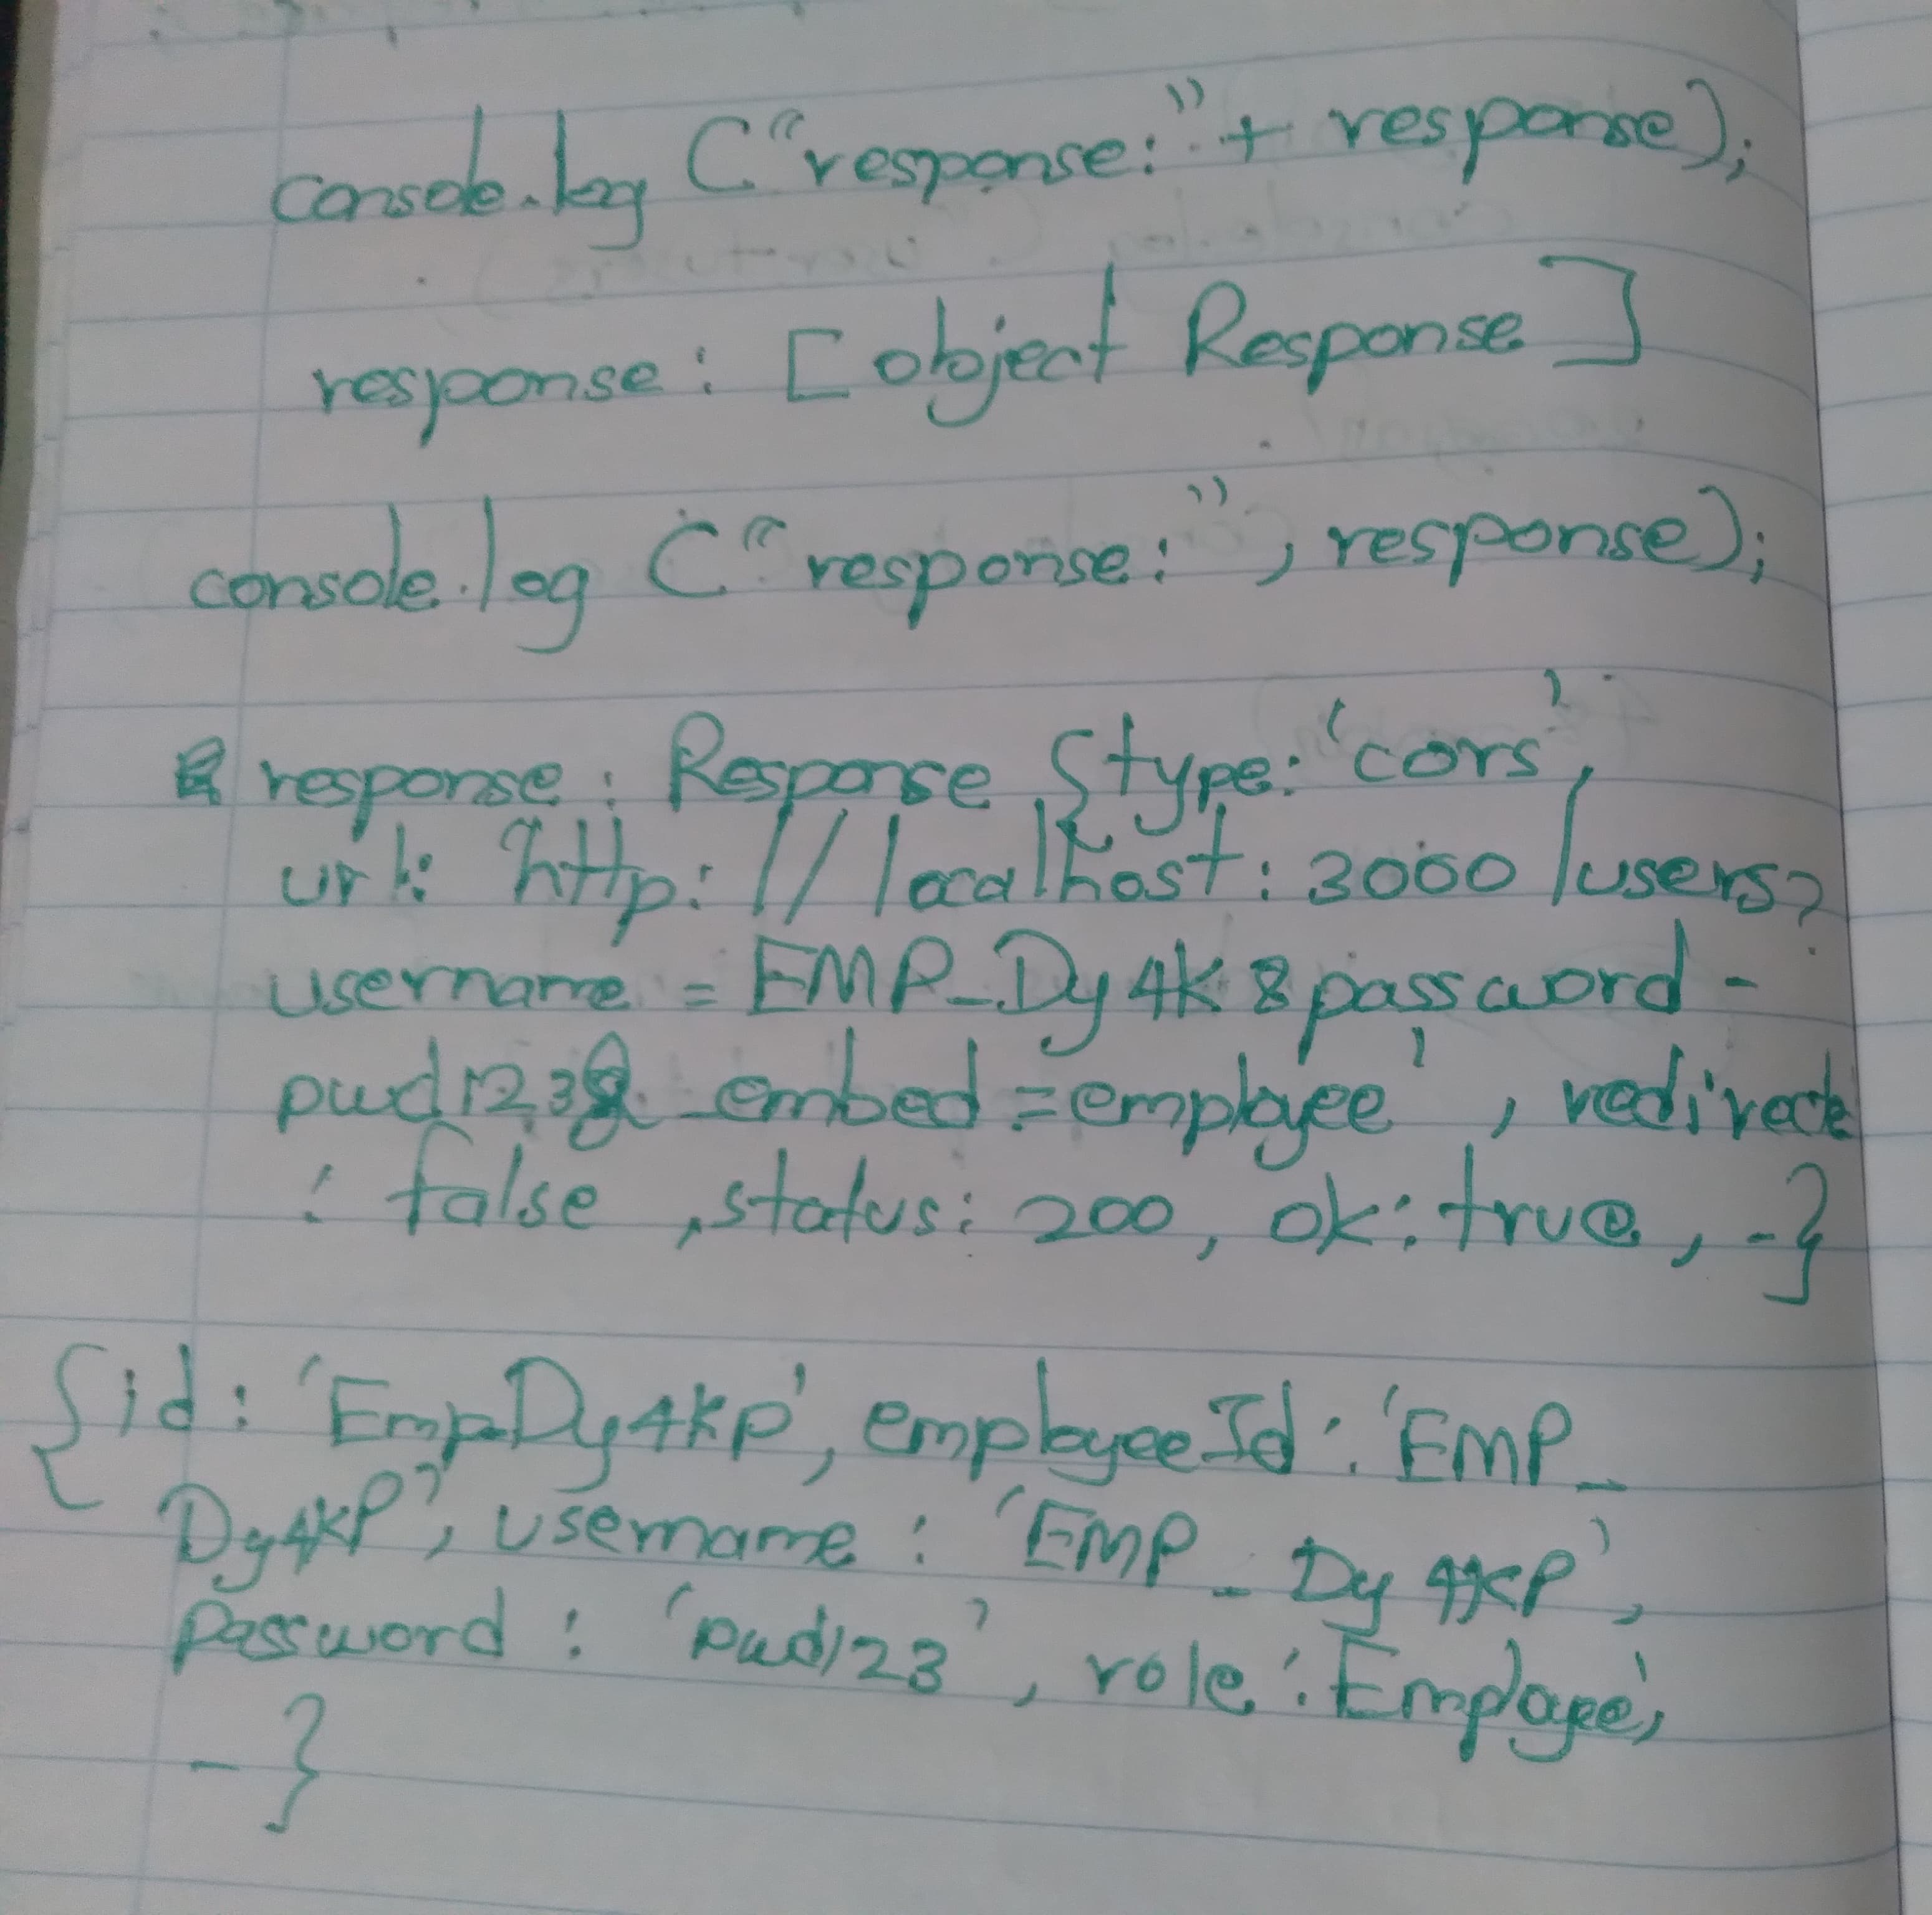 console.log ("response:" + response);
response: [object Response]
console.log ("response:", response);
response: Response {type: 'cors',
url: 'http://localhost:3000/users?
username = EMP_Dy4k&password -
pwd123& _embed=employee', redirecte
: false, status: 200, ok: true, -}
{id: 'EmpDy4kp', employeeId: 'EMP_
Dy4kP', username: 'EMP_Dy4kP',
password: 'pwd123', role: 'Employee',
-}